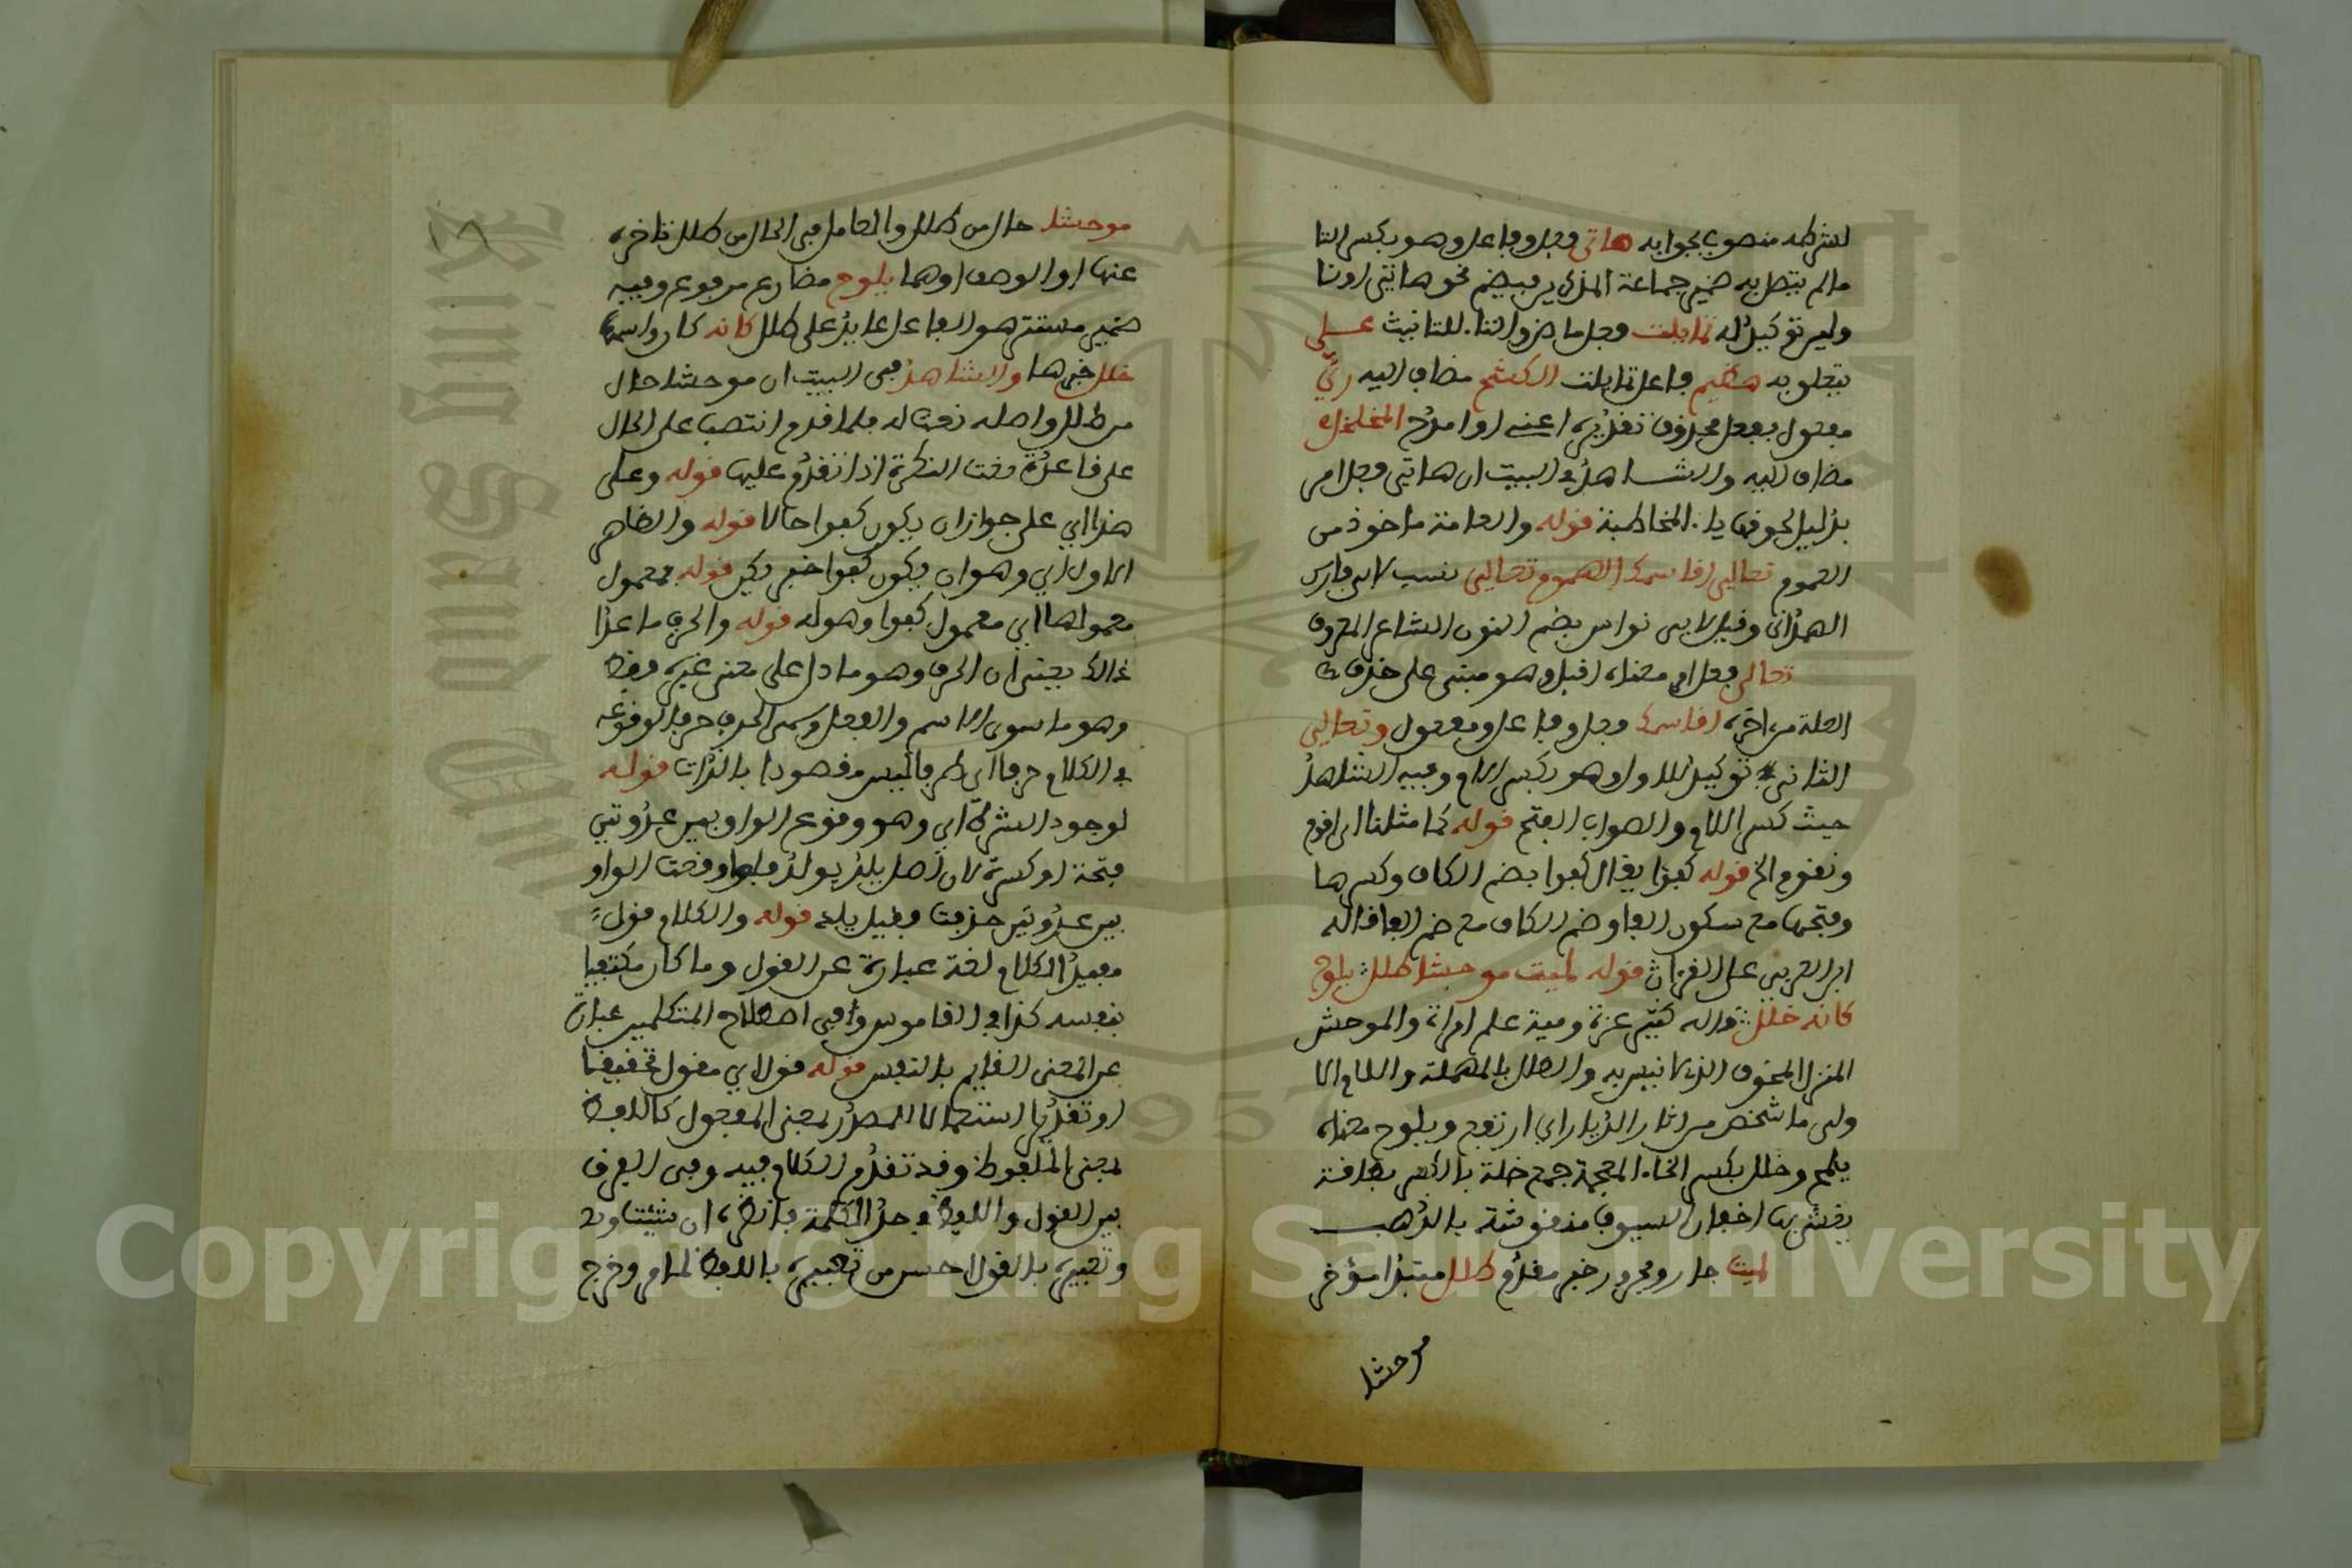 لشرطه منصوب بجوابه هاتي فعل وفاعل وهو بكسر التا
مالم يتصل به ضمير جماعة المذكرين فيضم نحو هاتي اونا
وليي توكيد له تمايلت فعل ماض والتاء للتانيث على
يتعلق به هضيم فاعل تمايلت الكشح مضاف اليه ريّ
مفعول بفعل محذوف تقديره اعني او امدح المخلخل
مضاف اليه والشاهد في البيت ان هاتي فعل امر
بدليل لحوق ياء المخاطبة قوله والعامة ماخوذ من
العموم تعالي اقاسمك الهموم تعالي نسب لابي فارس
الهمذاني وقيل لابي نواس بضم النون الشاعر المعروف
تعالى فعل امر معناه اقبل وهو مبني على حذف
العلة من اخره اقاسمك فعل وفاعل ومفعول وتعالي
الثاني توكيد للاول وهو بكسر اللام وفيه الشاهد
حيث كسر اللام والصواب الفتح قوله كما مثلنا اي اقوم
ونقوم الخ قوله كفؤا يقال كفوا بضم الكاف وكسرها
وفتحها مع سكون الفا وضم الكاف مع ضم الفا قاله
ابن العربي على القرءان قوله لمية موحشا طلل يلوح
كانه خلل قاله كثير عزة ومية علم امراة والموحش
المنزل المخوف الذي لا انيس به والطلل بالمهملة واللام الا
ولى ما شخص من اثار الديار اي ارتفع ويلوح معناه
يلمع وخلل بكسر الخاء المعجمة جمع خلة بالكسر بطاقة
يغشى بها اجفان السيوف منقوشة بالذهب
لمية جار ومجرور خبر مقدم طلل مبتدا مؤخر
موحشا
موحشا حال من طلل والعامل في الحال من طلل تاخره
عنها او الوصف او هما يلوح مضارع مرفوع وفيه
ضمير مستتر هو الفاعل عايد على طلل كانه كان واسمها
خلل خبرها والشاهد في البيت ان موحشا حال
من طلل واصله نعت له فلما قدم انتصب على الحال
على قاعدة نعت النكرة اذا تقدم عليها قوله وعلى
هذا اي على جواز ان يكون كفوا حالا قوله والظاهر
الاول اي وهو ان يكون كفوا خبر يكن قوله بمعمول
معمولها اي معمول كفوا وهو له قوله والحرف ما عدا
ذالك يعني ان الحرف وهو ما دل على معنى في غيره فقط
وهو ما سوى الاسم والفعل وسمي الحرف حرفا لوقوعه
في الكلام حرفا اي طرفا ليس مقصودا بالذات قوله
لوجود الشرط اي وهو وقوع الواو بين عدوتيي
فتحة او كسرة لان اصل يلد يولد فلما وقعت الواو
بين عدوتيي حذفت فقيل يلد قوله والكلام قول
مفيد الكلام لغة عبارة عن القول وما كان مكتفيا
بنفسه كذا في القاموس وفي اصطلاح المتكلمين عبارة
عن المعنى القايم بالنفس قوله قول اي مقول تحقيقا
او تقديرا استعمالا للمصدر بمعنى المفعول كاللفظ
بمعنى الملفوظ وقد تقدم الكلام فيه وفي الفرق
بين القول واللفظ في حد الكلمة فانظره ان شئت
وتعبيره بالقول احسن من تعبيره باللفظ لما مر وخرج